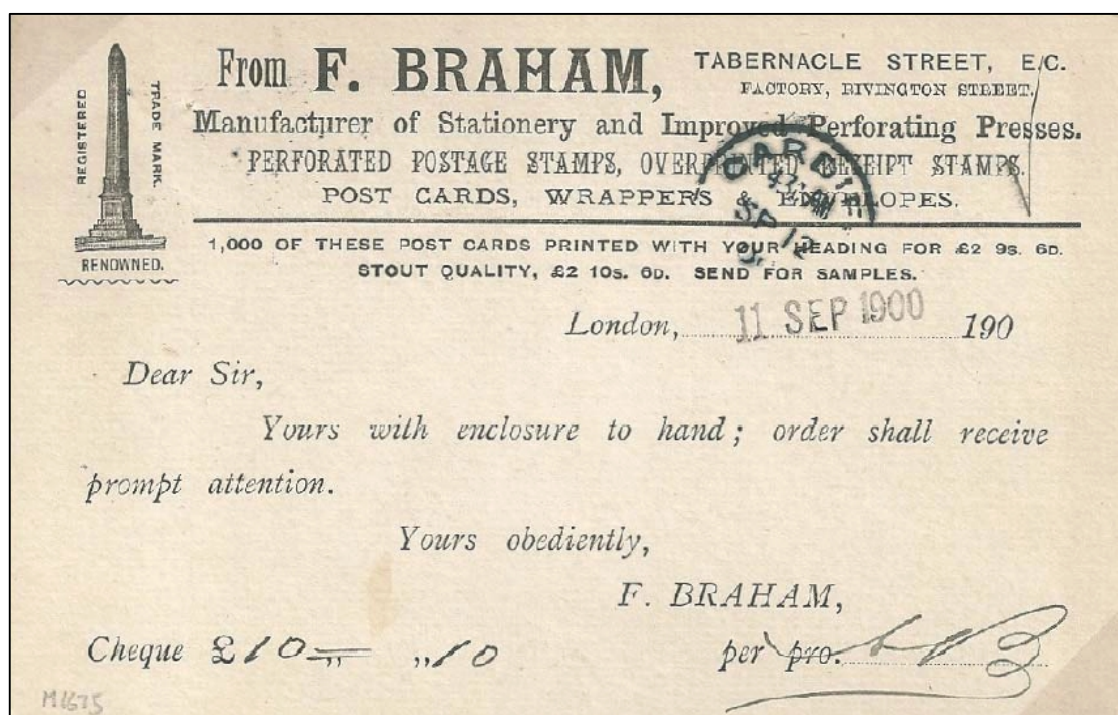 REGISTERED
TRADE MARK.
RENOWNED.
From F. BRAHAM,
TABERNACLE STREET, E.C.
FACTORY, RIVINGTON STREET.
Manufacturer of Stationery and Improved Perforating Presses.
PERFORATED POSTAGE STAMPS, OVERPRINTED RECEIPT STAMPS.
POST CARDS, WRAPPERS & ENVELOPES.
CARDIFF
SP 12
1,000 OF THESE POST CARDS PRINTED WITH YOUR HEADING FOR £2 9s. 6D.
STOUT QUALITY, £2 10s. 6D. SEND FOR SAMPLES.
London, 11 SEP 1900 190
Dear Sir,
Yours with enclosure to hand; order shall receive
prompt attention.
Yours obediently,
F. BRAHAM,
Cheque £10 = ,, ,,10
per pro.
M1675